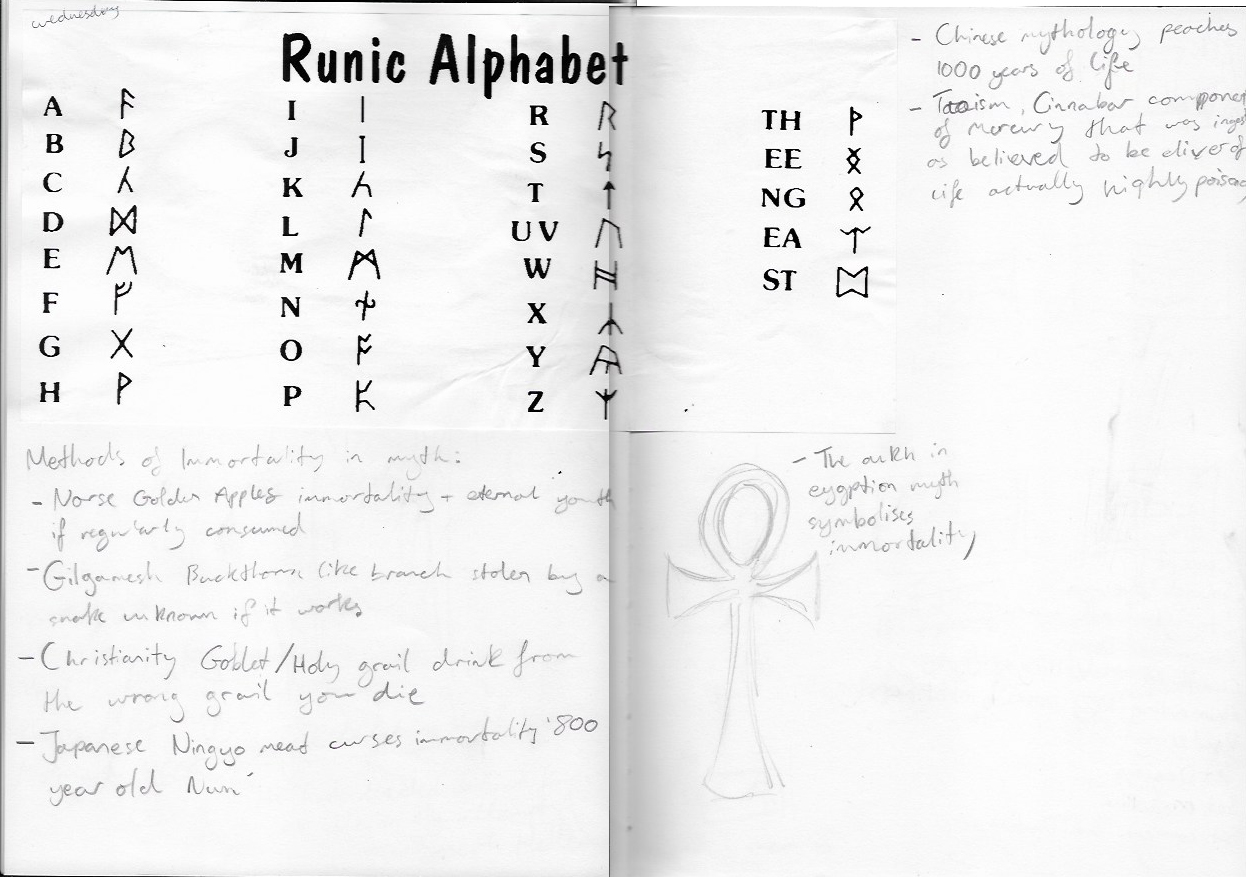 wednesday
Runic Alphabet
A ᚨ I ᛁ R ᚱ TH ᚦ
B ᛒ J ᛁ S ᛋ EE ᛝ
C ᚳ K ᚴ T ↑ NG ᛟ
D ᛞ L ᛚ UV ᚢ EA ᛠ
E ᛖ M ᛗ W ᚺ ST
F ᚠ N ᚾ X ᛦ
G ᚷ O ᚩ Y
H ᚹ P Z ᛉ
Methods of Immortality in myth:
- Norse Golden Apples immortality + eternal youth
if regularly consumed
- Gilgamesh Buckthorn like branch stolen by a
snake unknown if it works
- Christianity Goblet/Holy grail drink from
the wrong grail you die
- Japanese Ningyo meat curses immortality '800
year old Nun'
- Chinese mythology peaches
1000 years of life
- Taoism, Cinnabar component
of mercury that was inges
as believed to be elixer of
life actually highly poison
- The ankh in
eygption myth
symbolises
immortality